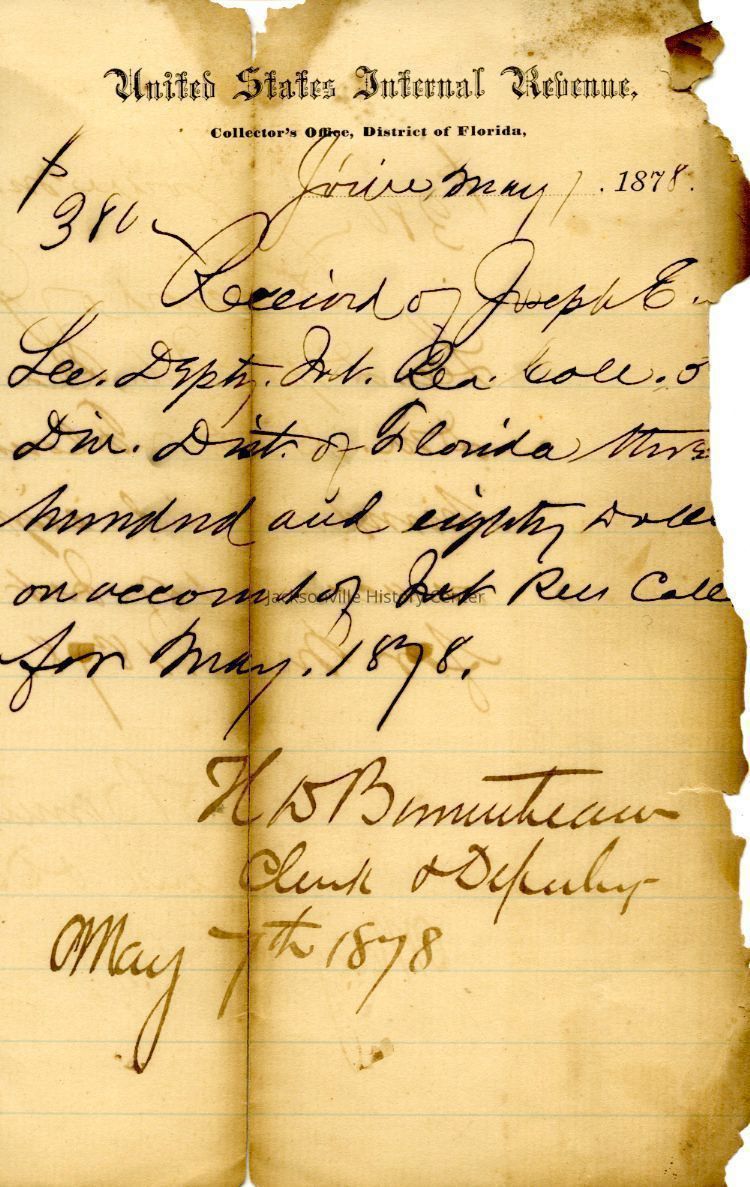 United States Internal Revenue,
Collector's Office, District of Florida,
$
380
May 7. 1878.
Received of Joseph E.
Lee. Depty. Int. Rev. Coll. 3
Div. Dist. of Florida three
hundred and eighty Dolla
on account of Int Rev Colle
Jacksonville History Center
for May. 1878.
H D
Clerk & Deputy
May 7th 1878